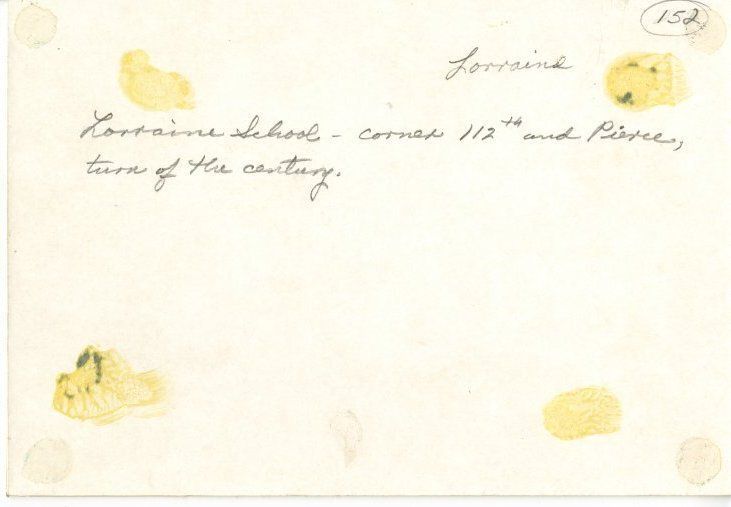 152
Lorraine
Lorraine School - corner 112th and Pierce,
turn of the century.